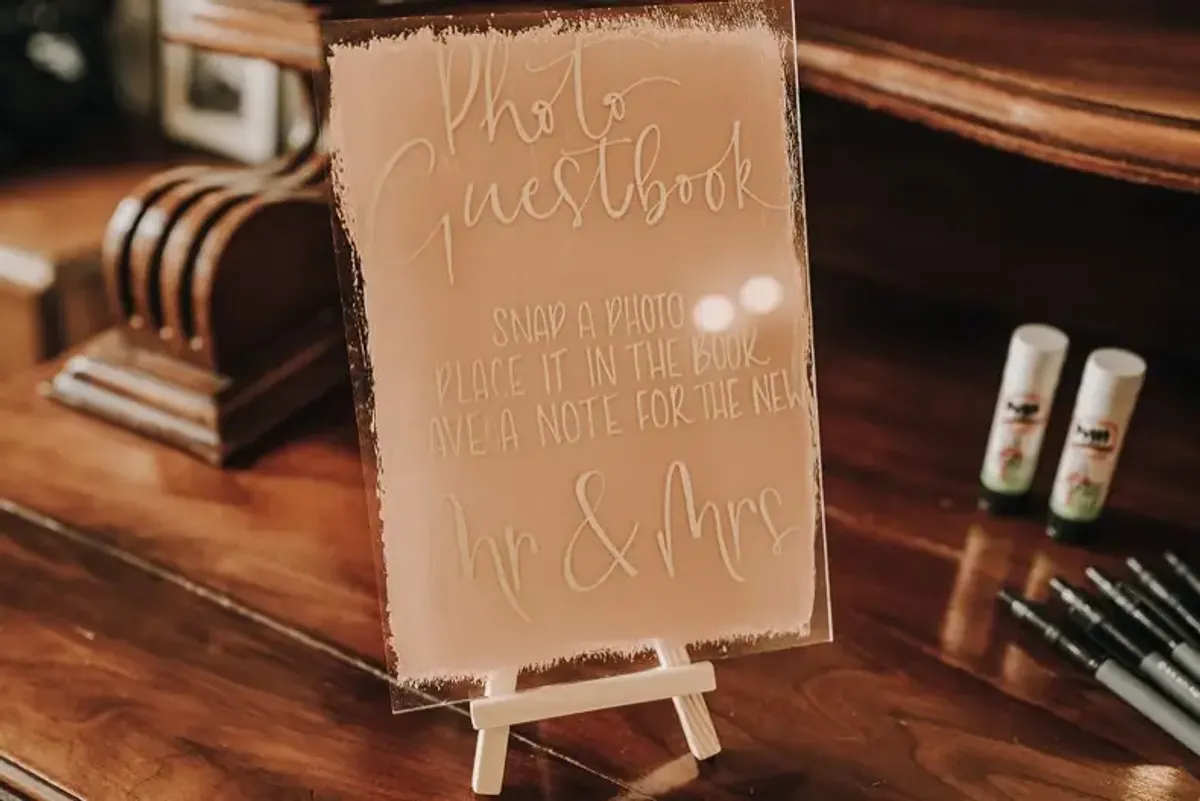 Photo
Guestbook
SNAP A PHOTO
PLACE IT IN THE BOOK
AVE A NOTE FOR THE NEW
Mr & Mrs